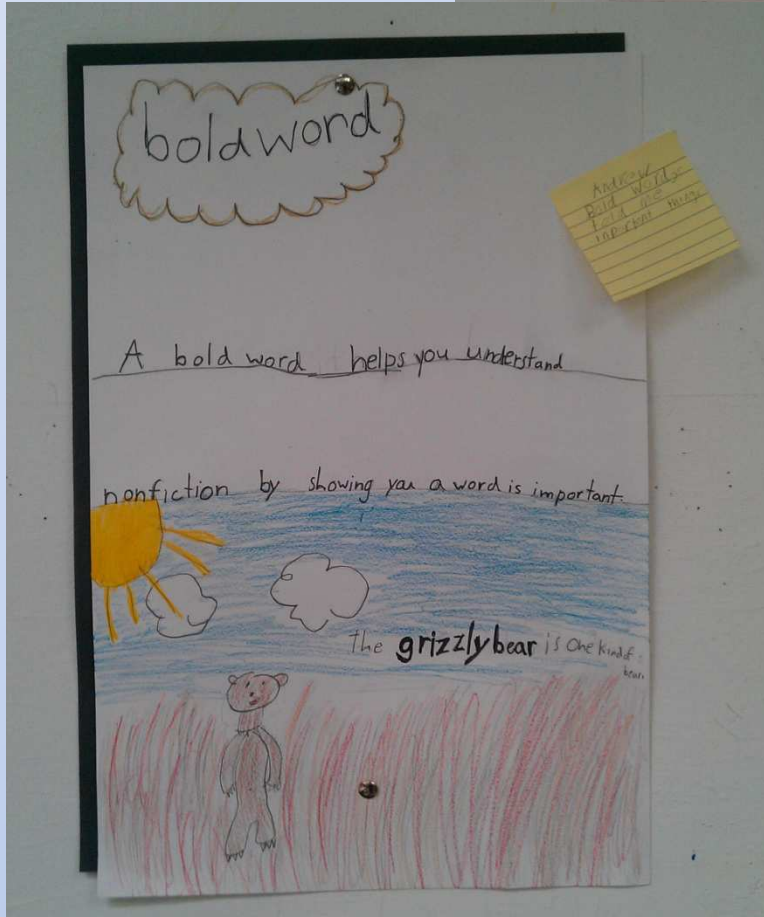 boldword
Andrew
Bold words
told me
inportent things
A bold word helps you understand
nonfiction by showing you a word is important.
The grizzly bear is one kind of
bear.